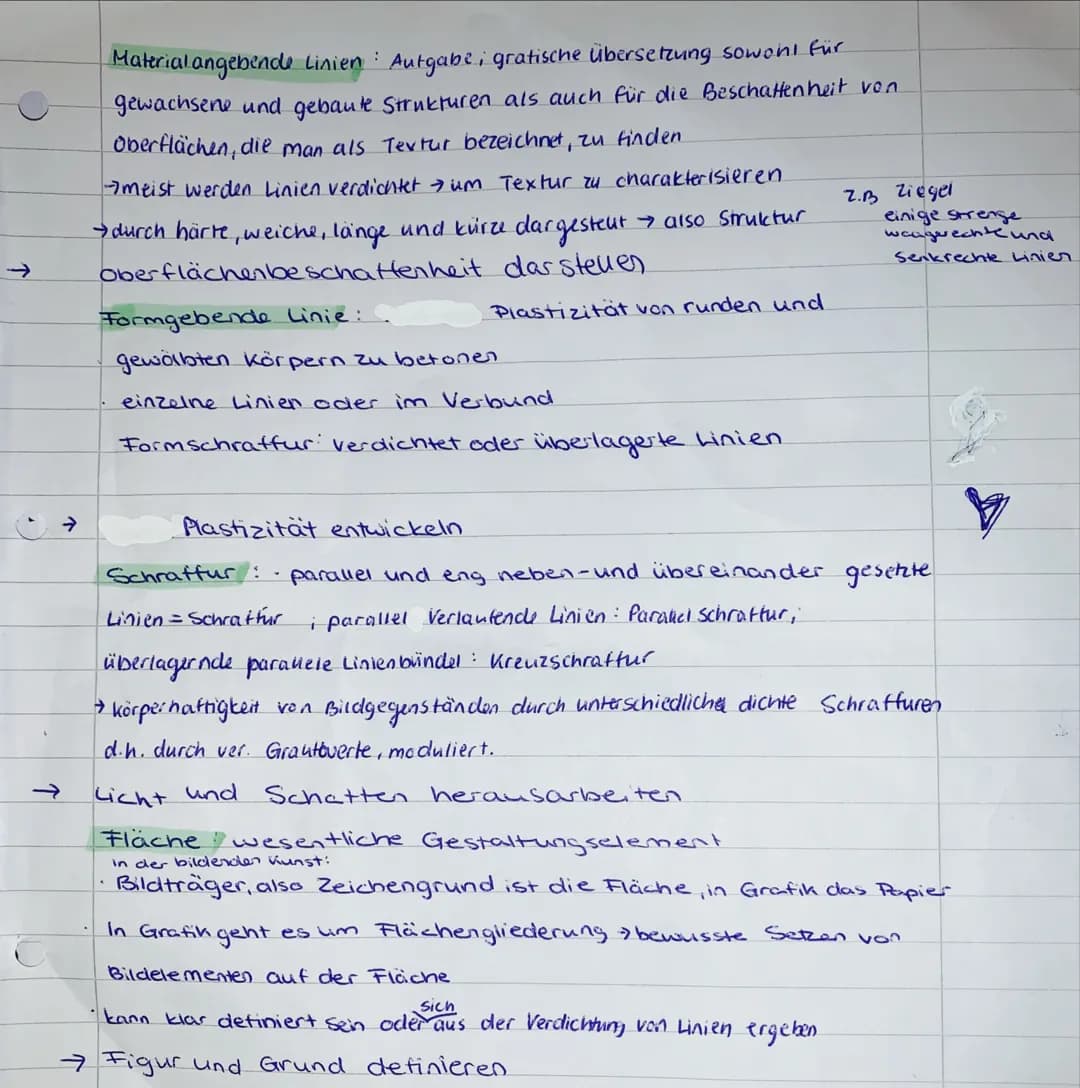 Materialangebende Linien : Aufgabe; grafische Übersetzung sowohl für
gewachsene und gebaute Strukturen als auch für die Beschaffenheit von
Oberflächen, die man als Textur bezeichnet, zu finden
→ meist werden Linien verdichtet → um Textur zu charakterisieren
z.B Ziegel
→ durch härte, weiche, länge und kürze dargestellt → also Struktur
einige strenge
waagrechte und
senkrechte Linien
→ Oberflächenbeschaffenheit darstellen
Formgebende Linie : Plastizität von runden und
gewölbten Körpern zu betonen
· einzelne Linien oder im Verbund
Formschraffur: verdichtet oder überlagerte Linien
→ Plastizität entwickeln
Schraffur : · parallel und eng neben- und übereinander gesetzte
Linien = Schraffur ; parallel Verlaufende Linien : Parallel Schraffur,
überlagernde parallele Linienbündel : Kreuzschraffur
→ körperhaftigkeit von Bildgegenständen durch unterschiedliche dichte Schraffuren
d.h. durch ver. moduliert.
→ Licht und Schatten herausarbeiten
Fläche : wesentliche Gestaltungselement
in der bildenden Kunst:
· Bildträger, also Zeichengrund ist die Fläche, in Grafik das Papier
· In Grafik geht es um Flächengliederung → bewusste Setzen von
Bildelementen auf der Fläche
· kann klar definiert sein oder sich aus der Verdichtung von Linien ergeben
→ Figur und Grund definieren